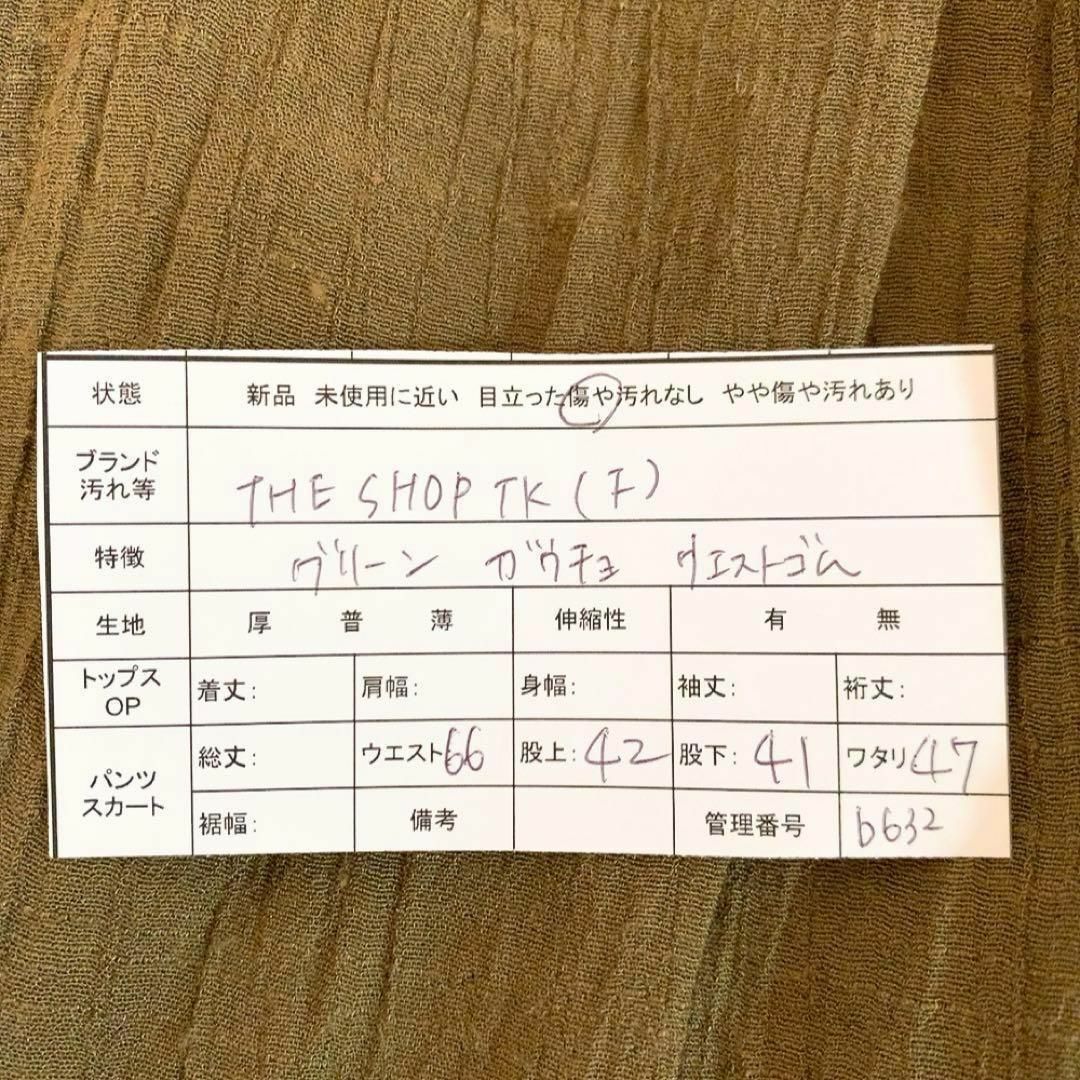 状態 新品 未使用に近い 目立った傷や汚れなし やや傷や汚れあり
ブランド
汚れ等
THE SHOP TK (F)
特徴 グリーン ガウチョ ウエストゴム
生地 厚 普 薄 伸縮性 有 無
トップス
OP
着丈: 肩幅: 身幅: 袖丈: 裄丈:
パンツ
スカート
総丈: ウエスト66 股上:42 股下:41 ワタリ47
裾幅: 備考 管理番号 b632